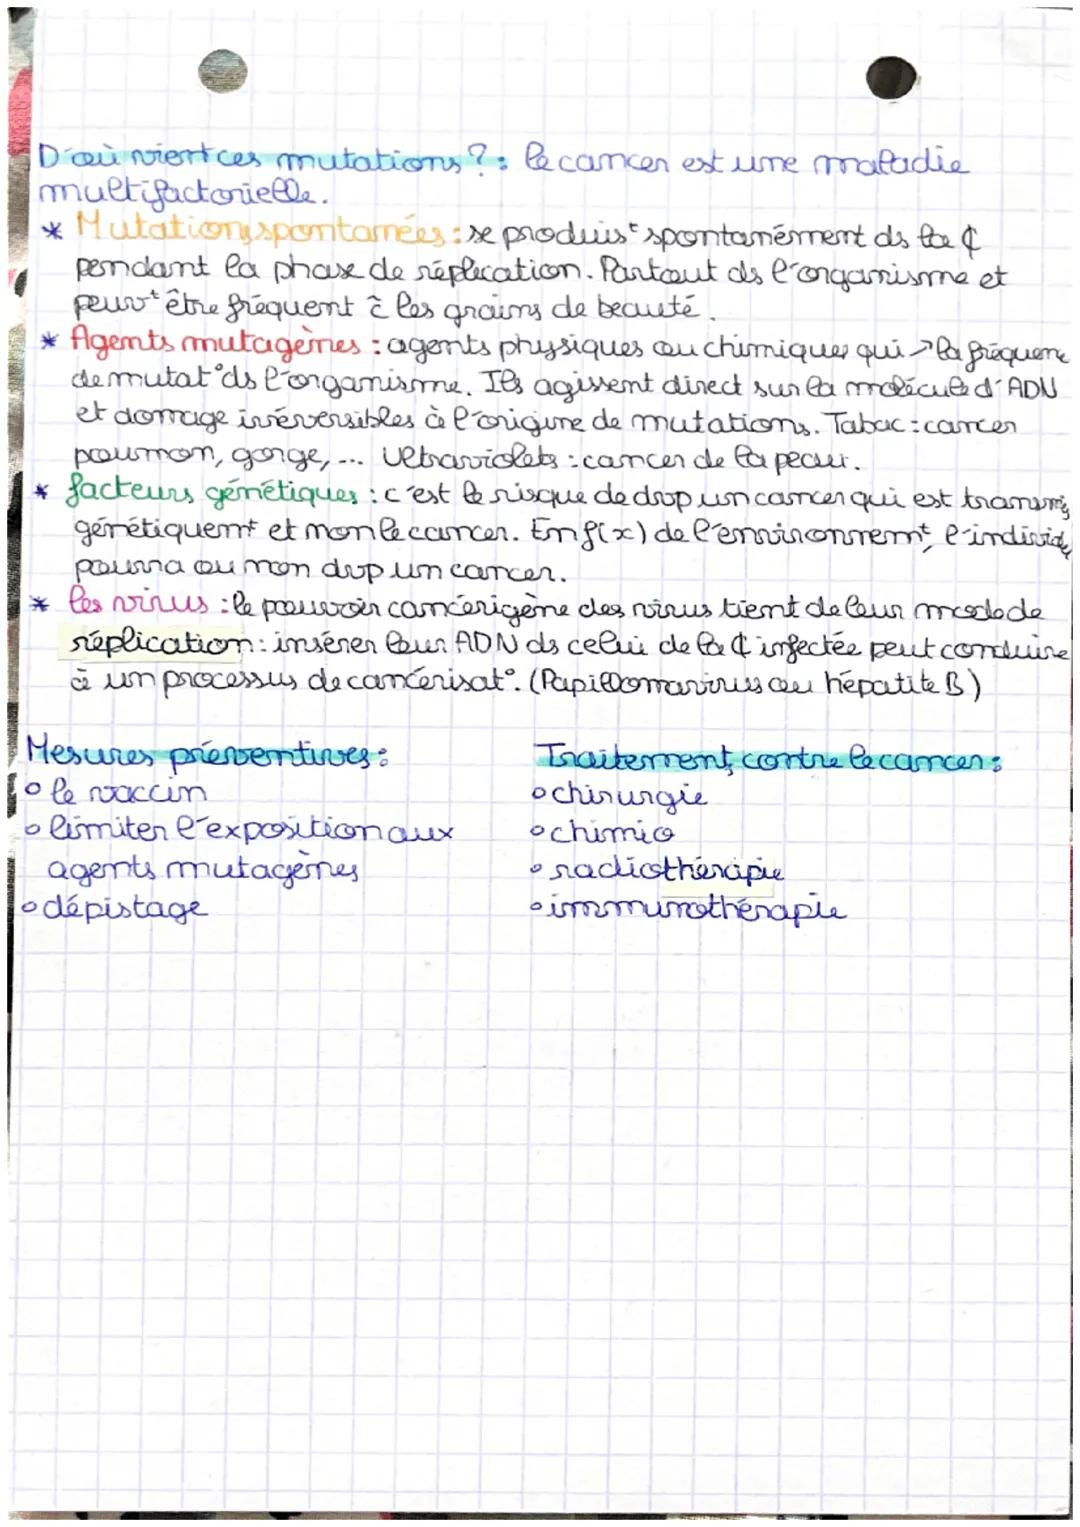 D'où vient ces mutations ? : le cancer est une maladie
multifactorielle.
* Mutations spontanées : se produisᵗ spontanément ds la ₵
pendant la phase de réplication. Partout ds l'organisme et
peuvᵗ être fréquent c̄ les grains de beauté.
* Agents mutagènes : agents physiques ou chimiques qui ↗ la fréquenc
de mutat° ds l'organisme. Ils agissent direct sur la molécule d'ADN
et domage irréversibles à l'origine de mutations. Tabac : cancer
poumon, gorge, ... Ultraviolets : cancer de la peau.
* facteurs génétiques : c'est le risque de dvop un cancer qui est transmis
génétiquemt et non le cancer. En f(x) de l'environnemt, l'individu
pourra ou non dvp un cancer.
* les virus : le pouvoir cancérigène des virus tient de leur mode de
réplication : insérer leur ADN ds celui de la ₵ infectée peut conduire
à un processus de cancérisat°. (Papillomavirus ou hépatite B)
Mesures préventives :
° le vaccin
° limiter l'exposition aux
agents mutagènes
° dépistage
Traitements contre le cancer :
° chirurgie
° chimio
° radiothérapie
° immunothérapie